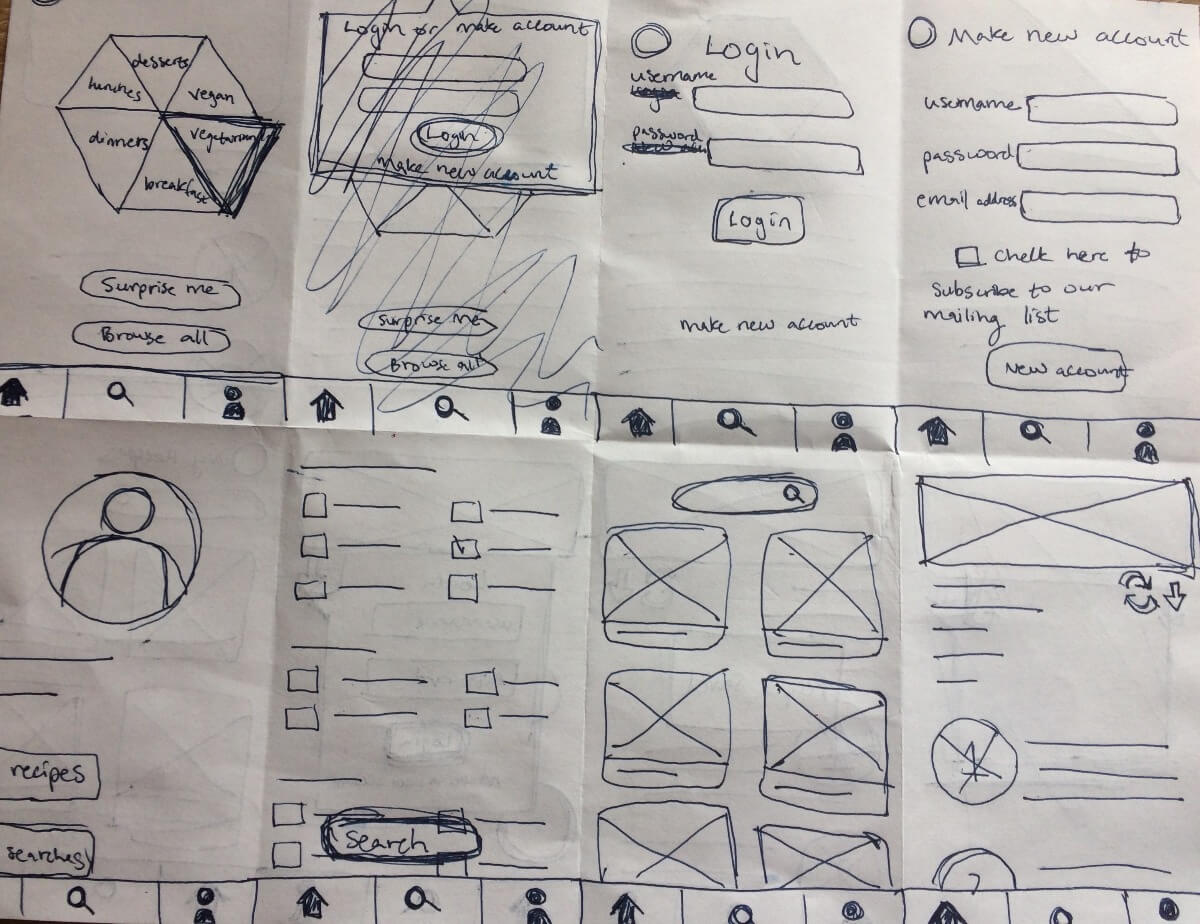 desserts
lunches
vegan
dinners
vegetarian
breakfast
Surprise me
Browse all
Login or make account
Login
make new account
Surprise me
Browse all
Login
username
password
Login
make new account
Make new account
username
password
email address
Check here to
subscribe to our
mailing list
New account
recipes
searches
Search
1
2